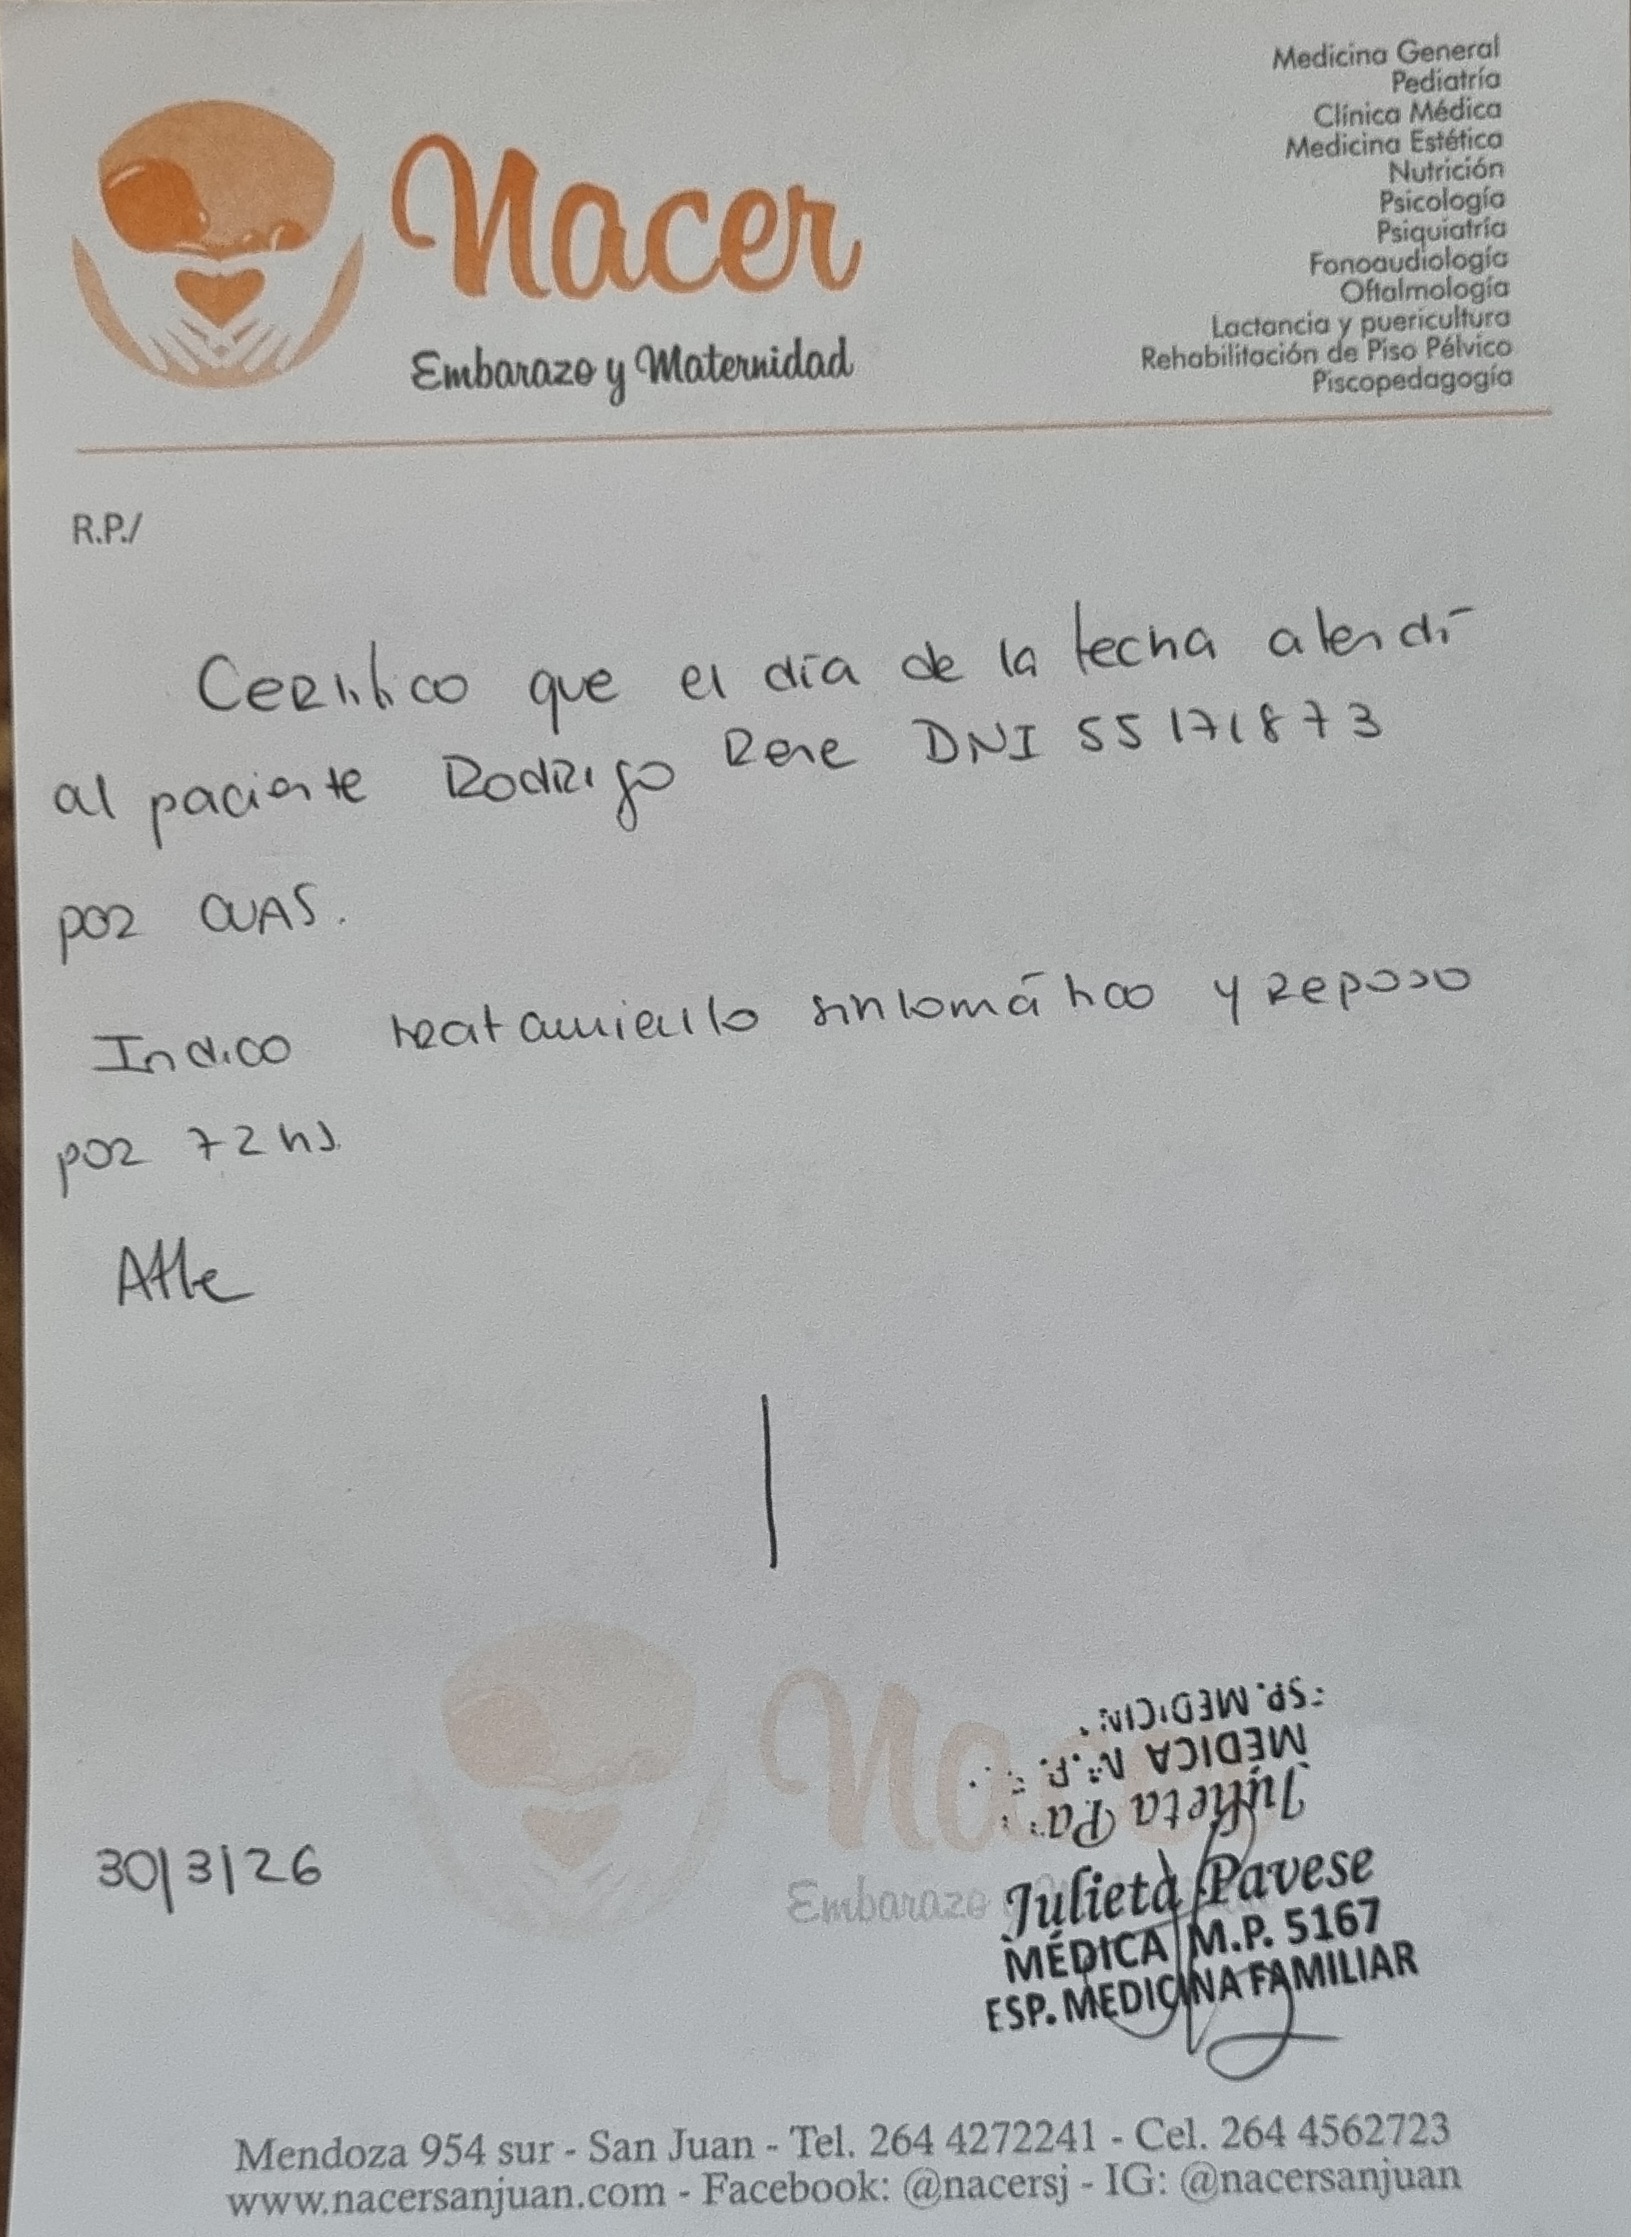 Nacer
Embarazo y Maternidad
Medicina General
Pediatría
Clínica Médica
Medicina Estética
Nutrición
Psicología
Psiquiatría
Fonoaudiología
Oftalmología
Lactancia y puericultura
Rehabilitación de Piso Pélvico
Piscopedagogía
R.P./
Certifico que el día de la fecha atendí
al paciente Rodrigo Rene DNI 55171873
por CVAS.
Indico tratamiento sintomático y reposo
por 72 hs
Atte
ESP. MEDICIN
MEDICA M.P.
Julieta Pa
30/3/26
Embarazo
Julieta Pavese
MÉDICA M.P. 5167
ESP. MEDICINA FAMILIAR
Mendoza 954 sur - San Juan - Tel. 264 4272241 - Cel. 264 4562723
www.nacersanjuan.com - Facebook: @nacersj - IG: @nacersanjuan